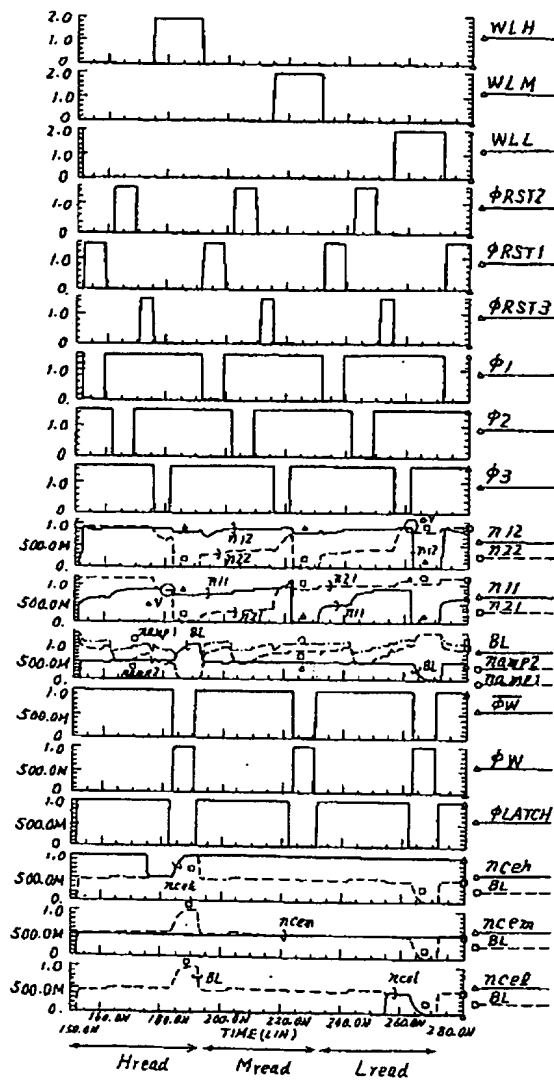 2.0
1.0
0.
WLH
2.0
1.0
0.
WLM
2.0
1.0
0.
WLL
1.0
0.
φRST2
1.0
0.
φRST1
1.0
0.
φRST3
1.0
0.
φ1
1.0
0.
φ2
1.0
0.
φ3
1.0
500.0M
n12
n22
n12
V
n12
n22
1.0
500.0M
0.
n11
n21
V
n21
n11
n11
n21
1.0
500.0M
0.
namp1
BL
namp2
BL
BL
namp2
namp1
1.0
500.0M
0.
φW
1.0
500.0M
0.
φW
1.0
500.0M
0.
φLATCH
1.0
500.0M
0.
nceh
nceh
BL
1.0
500.0M
0.
ncem
ncem
BL
1.0
500.0M
0.
BL
ncel
ncel
BL
150.0N 160.0N 180.0N 200.0N 220.0N 240.0N 260.0N 280.0N
TIME(LIN)
Hread Mread Lread